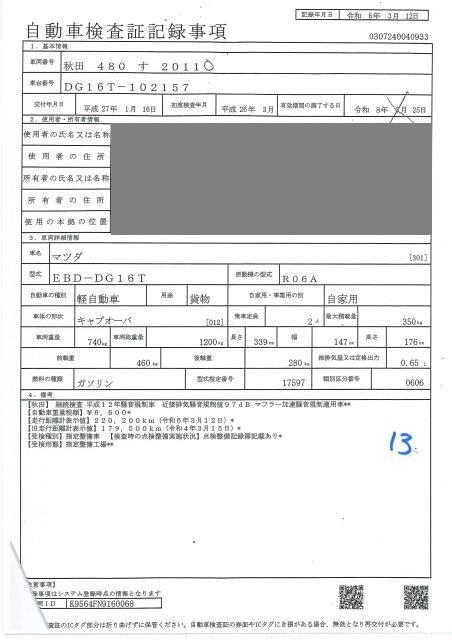 記録年月日 令和 6年 3月 12日
自動車検査証記録事項
0307240040933
1. 基本情報
車両番号 秋田 480 す 2011
車台番号 DG16T-102157
交付年月日 平成 27年 1月 16日 初度検査年月 平成 26年 3月 有効期間の満了する日 令和 8年 月 25日
2. 使用者・所有者情報
使用者の氏名又は名称
使用者の住所
所有者の氏名又は名称
所有者の住所
使用の本拠の位置
3. 車両詳細情報
車名 マツダ [301]
型式 EBD-DG16T 原動機の型式 R06A
自動車の種別 軽自動車 用途 貨物 自家用・事業用の別 自家用
車体の形状 キャブオーバ [012] 乗車定員 2人 最大積載量 350kg
車両重量 740kg 車両総重量 1200kg 長さ 339cm 幅 147cm 高さ 176cm
前軸重 460kg 後軸重 280kg 総排気量又は定格出力 0.65 L
燃料の種類 ガソリン 型式指定番号 17597 類別区分番号 0606
4. 備考
【秋田】 継続検査 平成12年騒音規制車 近接排気騒音規制値97dB マフラー加速騒音規制適用車**
【自動車重量税額】¥6,600*
【走行距離計表示値】220,200km（令和6年3月12日）*
【旧走行距離計表示値】179,500km（令和4年3月15日）*
【受検種別】指定整備車 【検査時の点検整備実施状況】点検整備記録簿記載あり*
【受検形態】指定整備工場**
13
意事項】
録事項はシステム登録時点の情報となります
ID K9564FN9160068
査証のICタグ部分は折り曲げずに保管ください。自動車検査証の券面やICタグにき損がある場合、無効となり再交付が必要です。